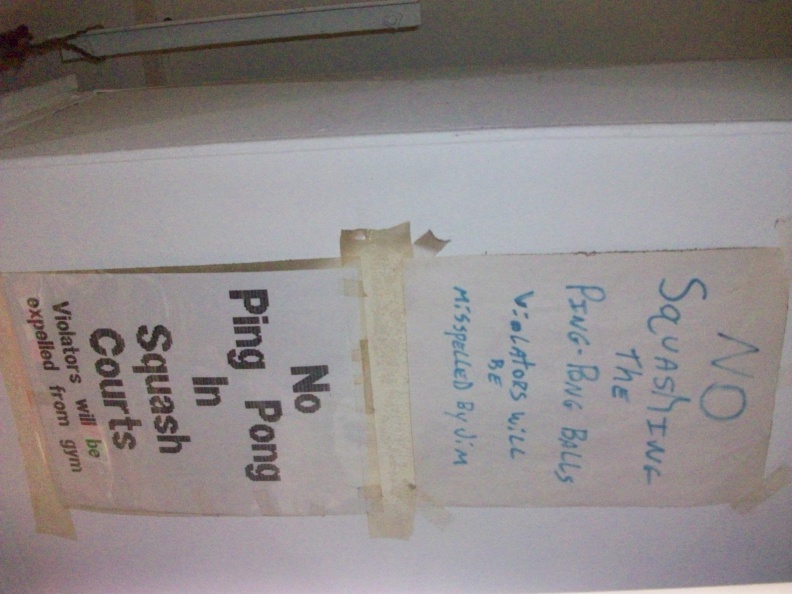 NO
SQUASHING
THE
PING-PONG BALLS
ViOLATORS WiLL
BE
MiSSPELLED BY JiM
No
Ping Pong
In
Squash
Courts
Violators will be
expelled from gym